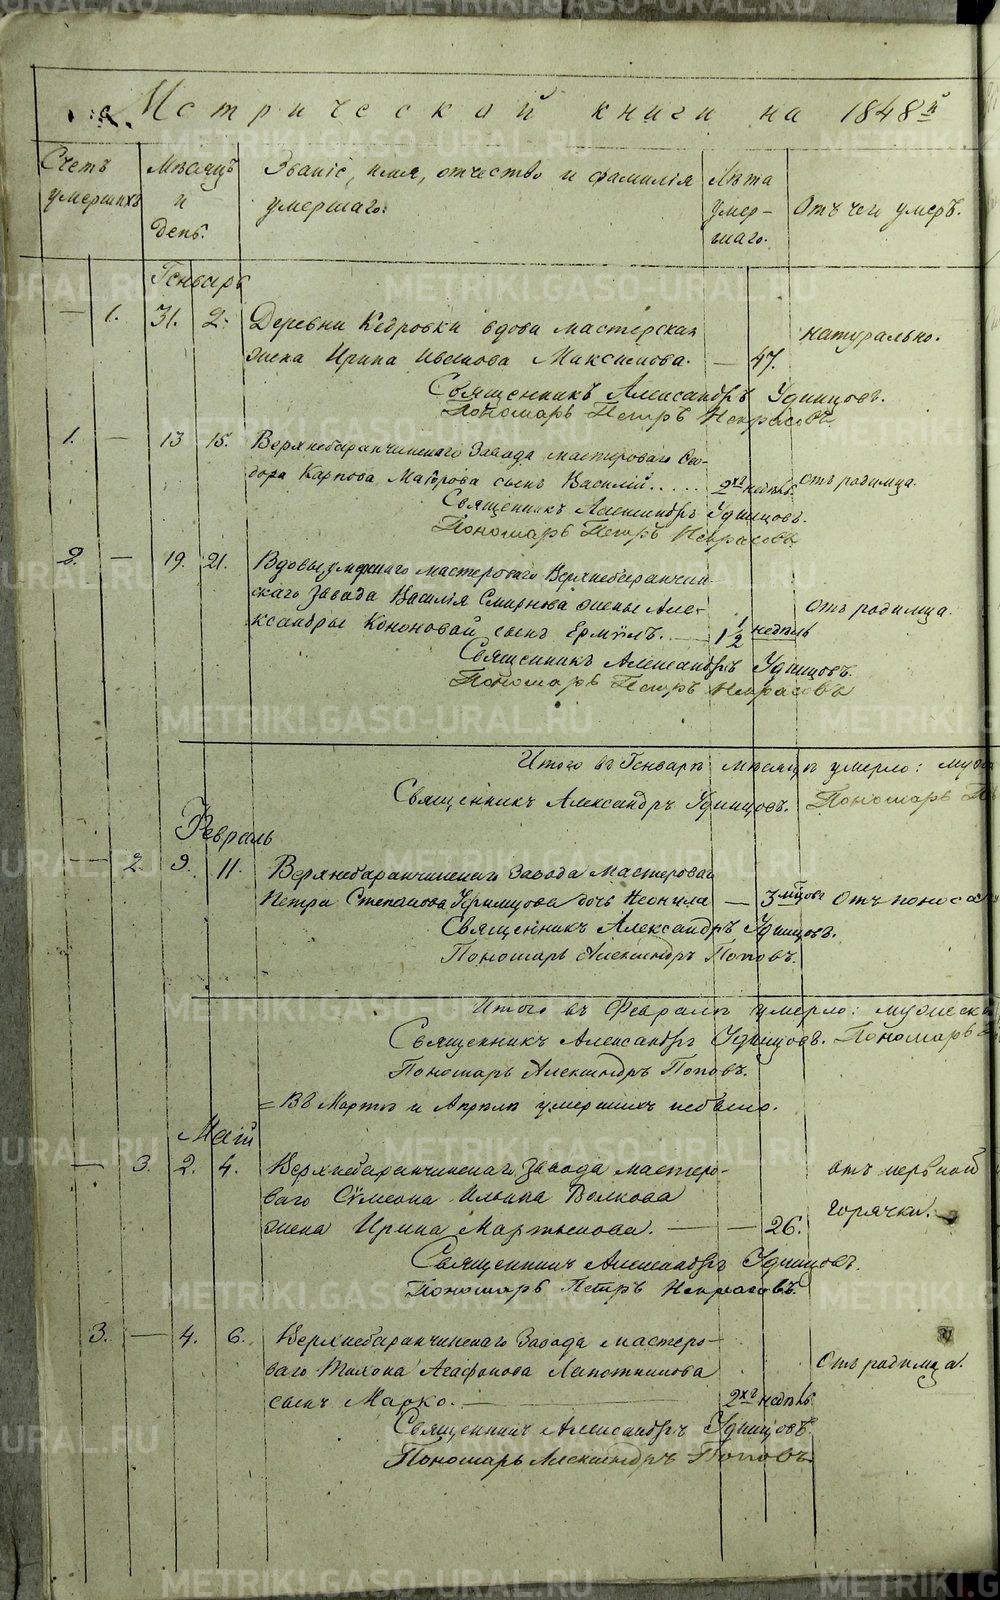 Метрической книги на 1848й
Счетъ умершихъ
Мѣсяцъ и день.
Званіе, имя, отчество и фамилія умершаго.
Лѣта умершаго.
Отъ чего умеръ.
Генварь
— 1. 31. 2. Деревни Кедровки вдова мастерская
жена Ирина Иванова Максимова. — 47. натурально.
Священникъ Александръ Удинцовъ.
Пономарь Петръ Некрасовъ
1. — 13 15. Верхнебаранчинскаго Завода мастероваго Ѳео-
дора Карпова сынъ Василій..... 2хъ недѣль. отъ родимца.
Священникъ Александръ Удинцовъ.
Пономарь Петръ Некрасовъ
2. — 19. 21. Вдовы умершаго мастероваго Верхнебаранчин-
скаго Завода Василія Смирнова жены Алек-
сандры Кононовой сынъ Ермилъ. — 1 1/2 недѣль отъ родимца.
Священникъ Александръ Удинцовъ.
Пономарь Петръ Некрасовъ
Итого въ Генварѣ мѣсяцѣ умерло:
Священникъ Александръ Удинцовъ. Пономарь
Февраль
— 2. 9. 11. Верхнебаранчинскаго Завода мастероваго
Петра Степанова дочь Неонила — 3 мѣцовъ отъ поноса
Священникъ Александръ Удинцовъ.
Пономарь Александръ Поповъ.
Итого въ Февралѣ умерло:
Священникъ Александръ Удинцовъ. Пономарь
Пономарь Александръ Поповъ.
= Въ Мартѣ и Апрѣлѣ умершихъ небыло.
Маій
— 3. 2. 4. Верхнебаранчинскаго Завода мастеро-
ваго Сѵмеона Ильина Волкова
жена Ирина Мартынова. — — 26. отъ нервной горячки.
Священникъ Александръ Удинцовъ.
Пономарь Петръ Некрасовъ.
3. — 4. 6. Верхнебаранчинскаго Завода мастеро-
ваго Тихона Агафонова Лапотникова
сынъ Марко. — 2хъ недѣль. Отъ родимца.
Священникъ Александръ Удинцовъ.
Пономарь Александръ Поповъ.
METRIKI.GASO-URAL.RU